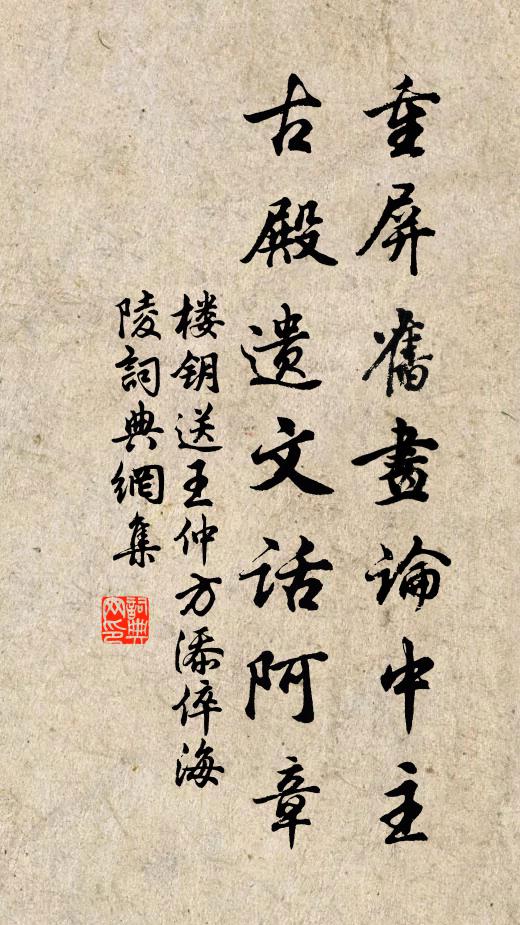 重屏舊畫論中主
古殿遗文话阿章
楼钥送王仲方添倅海
陵詞典網集
詞典
网印